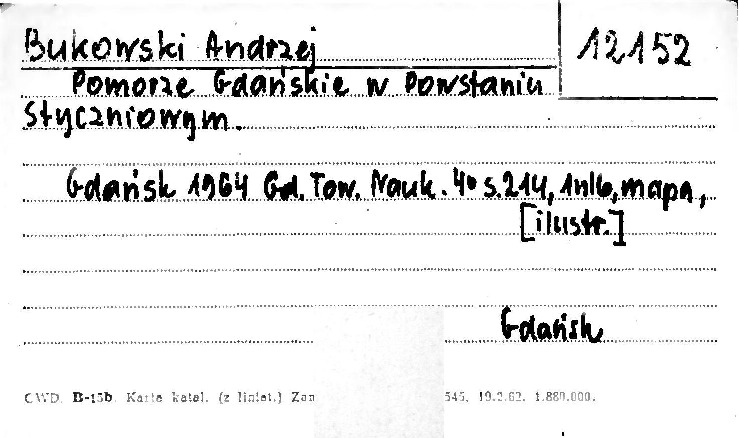 Bukowski Andrzej
12152
Pomorze Gdańskie w Powstaniu
Styczniowym.
Gdańsk 1964 Gd. Tow. Nauk. 4° s.214, 1nlb, mapa,
[ilustr.]
Gdańsk
CWD. B-15b. Karta katal. (z liniat.) Zam
545. 19.2.62. 1.880.000.